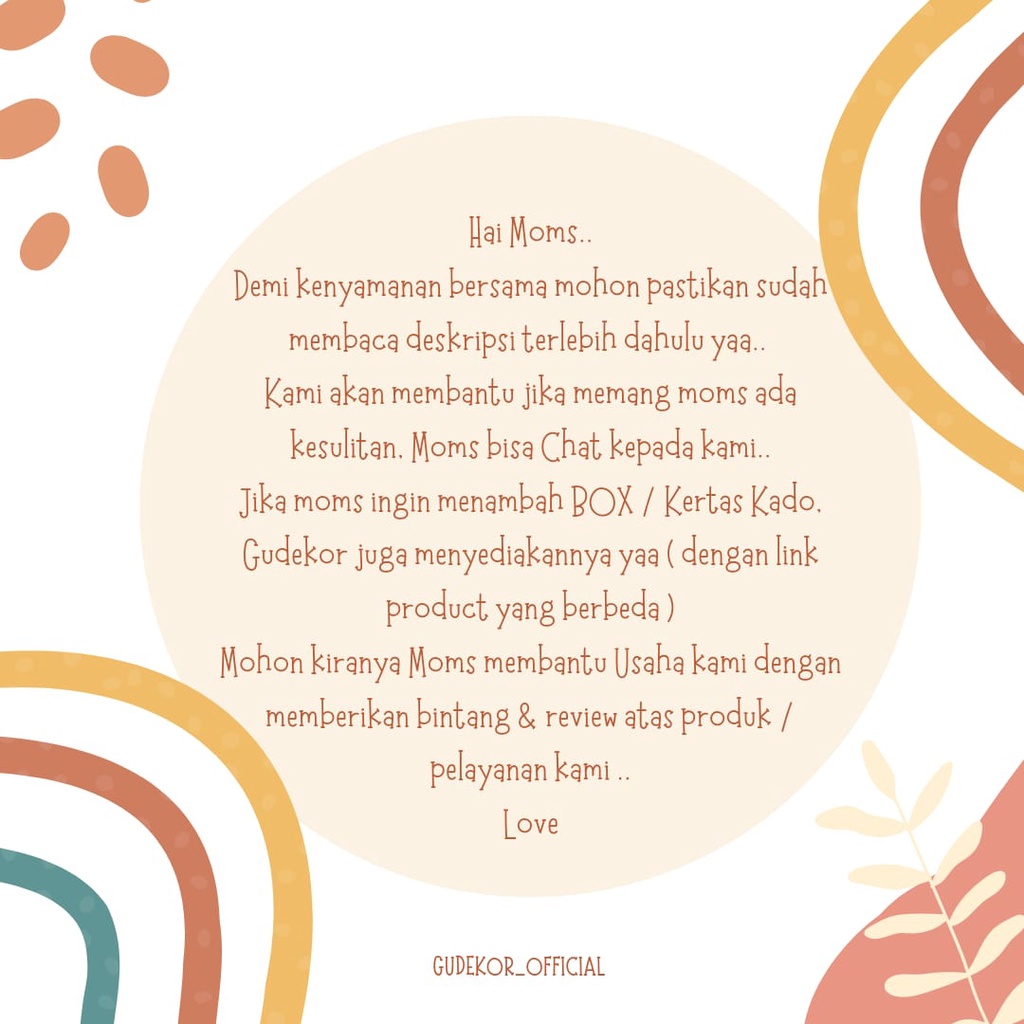 Hai Moms..
Demi kenyamanan bersama mohon pastikan sudah
membaca deskripsi terlebih dahulu yaa..
Kami akan membantu jika memang moms ada
kesulitan, Moms bisa Chat kepada kami..
Jika moms ingin menambah BOX / Kertas Kado,
Gudekor juga menyediakannya yaa ( dengan link
product yang berbeda )
Mohon kiranya Moms membantu Usaha kami dengan
memberikan bintang & review atas produk /
pelayanan kami ..
Love
GUDEKOR_OFFICIAL